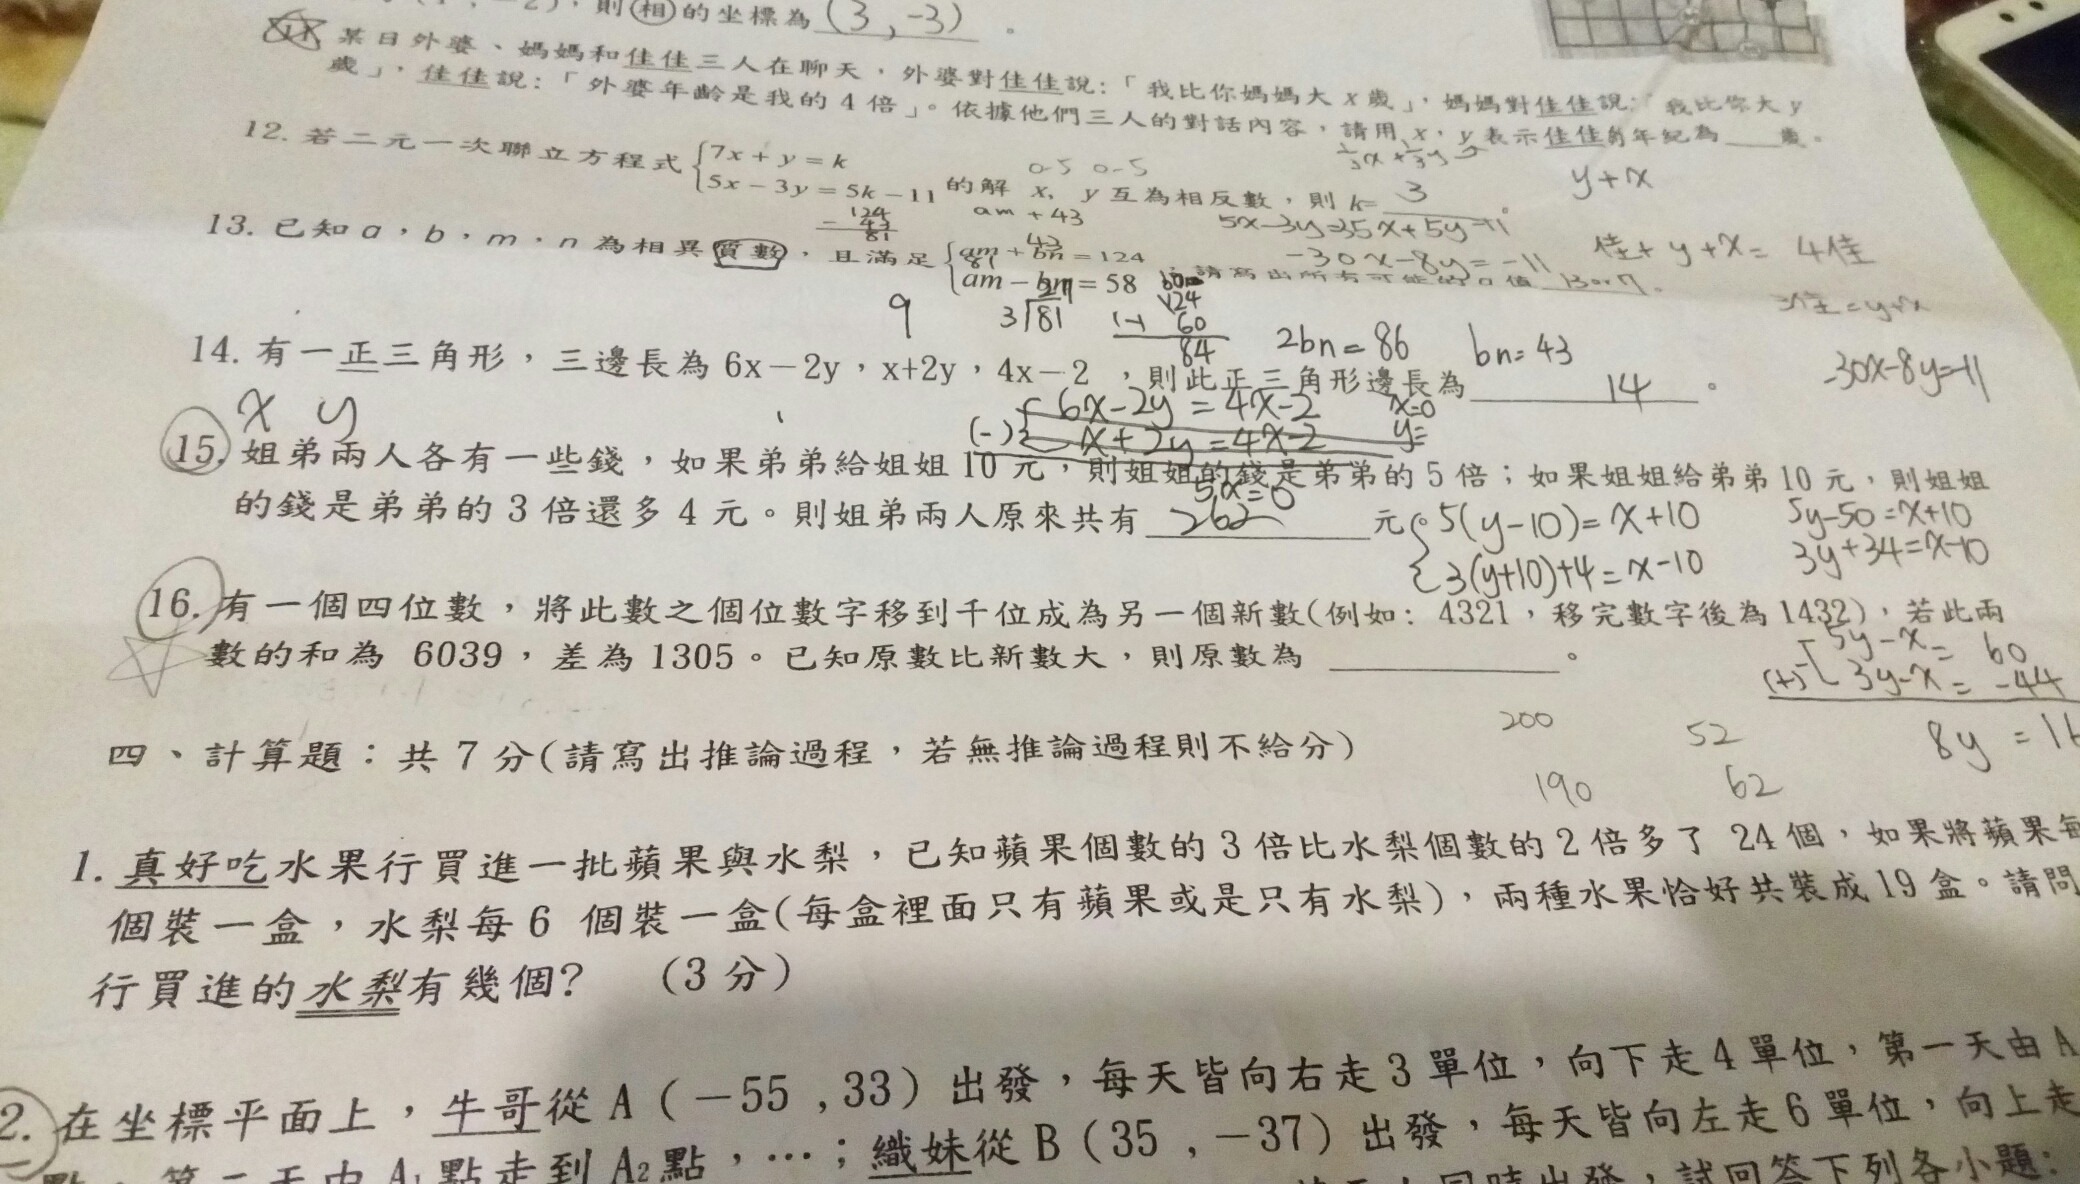 則相的坐標為 (3,-3) 。
11. 某日外婆、媽媽和佳佳三人在聊天，外婆對佳佳說：「我比你媽媽大 x 歲」，媽媽對佳佳說：「我比你大 y
歲」，佳佳說：「外婆年齡是我的 4 倍」。依據他們三人的對話內容，請用 x，y 表示佳佳的年紀為 歲。
1/3x+1/3y
y+x
12. 若二元一次聯立方程式 {7x+y=k
5x-3y=5k-11 的解 x, y 互為相反數，則 k= 3 。
0-5 0-5
124
- 43
81
am+43
5x-3y=35x+5y-11
-30x-8y=-11
佳+y+x=4佳
3佳=y+x
13. 已知 a，b，m，n 為相異質數，且滿足 {am+bn=124
am-bn=58 ，請寫出所有可能的 a 值 13or7 。
43
81
9
3 81
124
(-) 60
84
2bn=86
bn=43
-30x-8y=-11
14. 有一正三角形，三邊長為 6x-2y，x+2y，4x-2 ，則此正三角形邊長為 14 。
x y
6x-2y=4x-2
(-) x+2y=4x-2
5x=0
x=0
y=
15. 姐弟兩人各有一些錢，如果弟弟給姐姐 10 元，則姐姐的錢是弟弟的 5 倍；如果姐姐給弟弟 10 元，則姐姐
的錢是弟弟的 3 倍還多 4 元。則姐弟兩人原來共有 262 元。
5(y-10)=x+10
3(y+10)+4=x-10
5y-50=x+10
3y+34=x-10
16. 有一個四位數，將此數之個位數字移到千位成為另一個新數(例如：4321，移完數字後為 1432)，若此兩
數的和為 6039，差為 1305。已知原數比新數大，則原數為 。
5y-x=60
(+) 3y-x=-44
8y=16
200
52
190
62
四、計算題：共 7 分(請寫出推論過程，若無推論過程則不給分)
1. 真好吃水果行買進一批蘋果與水梨，已知蘋果個數的 3 倍比水梨個數的 2 倍多了 24 個，如果將蘋果每
個裝一盒，水梨每 6 個裝一盒(每盒裡面只有蘋果或是只有水梨)，兩種水果恰好共裝成 19 盒。請問
行買進的水梨有幾個? (3 分)
2. 在坐標平面上，牛哥從 A (-55 ,33) 出發，每天皆向右走 3 單位，向下走 4 單位，第一天由 A
點，第二天由 A₁ 點走到 A₂ 點，…；織妹從 B (35 , -37) 出發，每天皆向左走 6 單位，向上走
同時出發，試回答下列各小題：